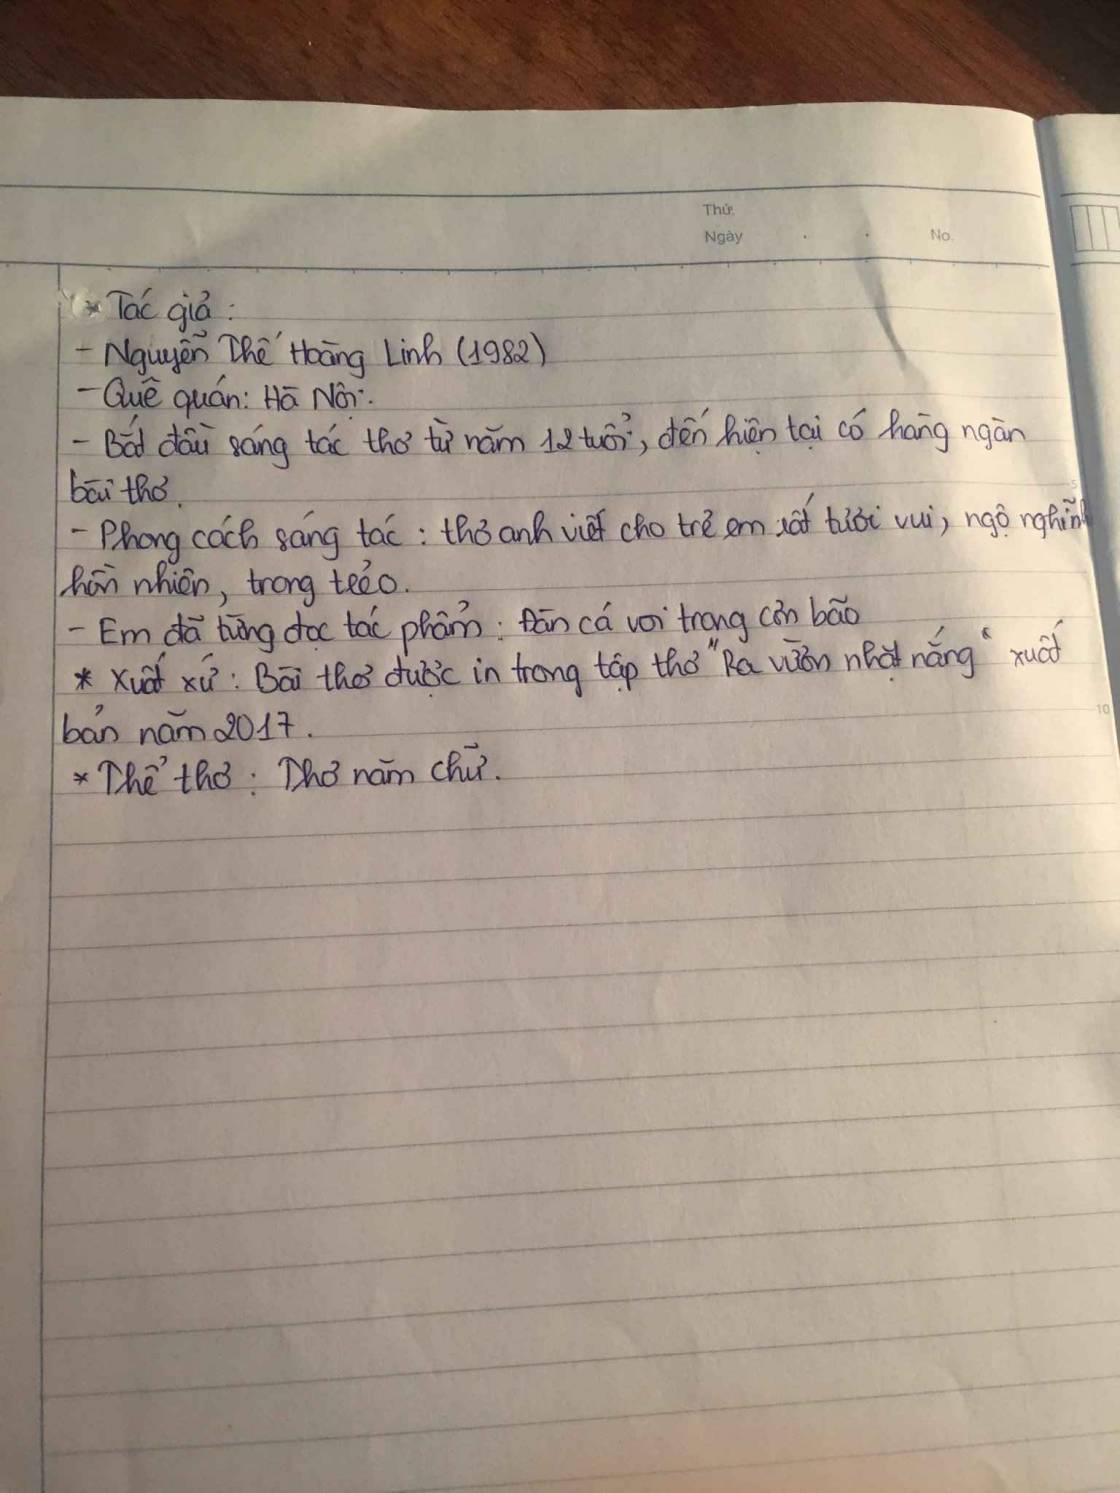 Thứ:
Ngày . . No.
* Tác giả :
- Nguyễn Thế Hoàng Linh (1982)
- Quê quán: Hà Nội.
- Bắt đầu sáng tác thơ từ năm 12 tuổi, đến hiện tại có hàng ngàn
bài thơ.
- Phong cách sáng tác : thơ anh viết cho trẻ em rất tươi vui, ngộ nghĩnh
hồn nhiên, trong trẻo.
- Em đã từng đọc tác phẩm : Đàn cá voi trong cơn bão
* Xuất xứ : Bài thơ được in trong tập thơ "Ra vườn nhặt nắng" xuất
bản năm 2017.
* Thể thơ : Thơ năm chữ.
5
10